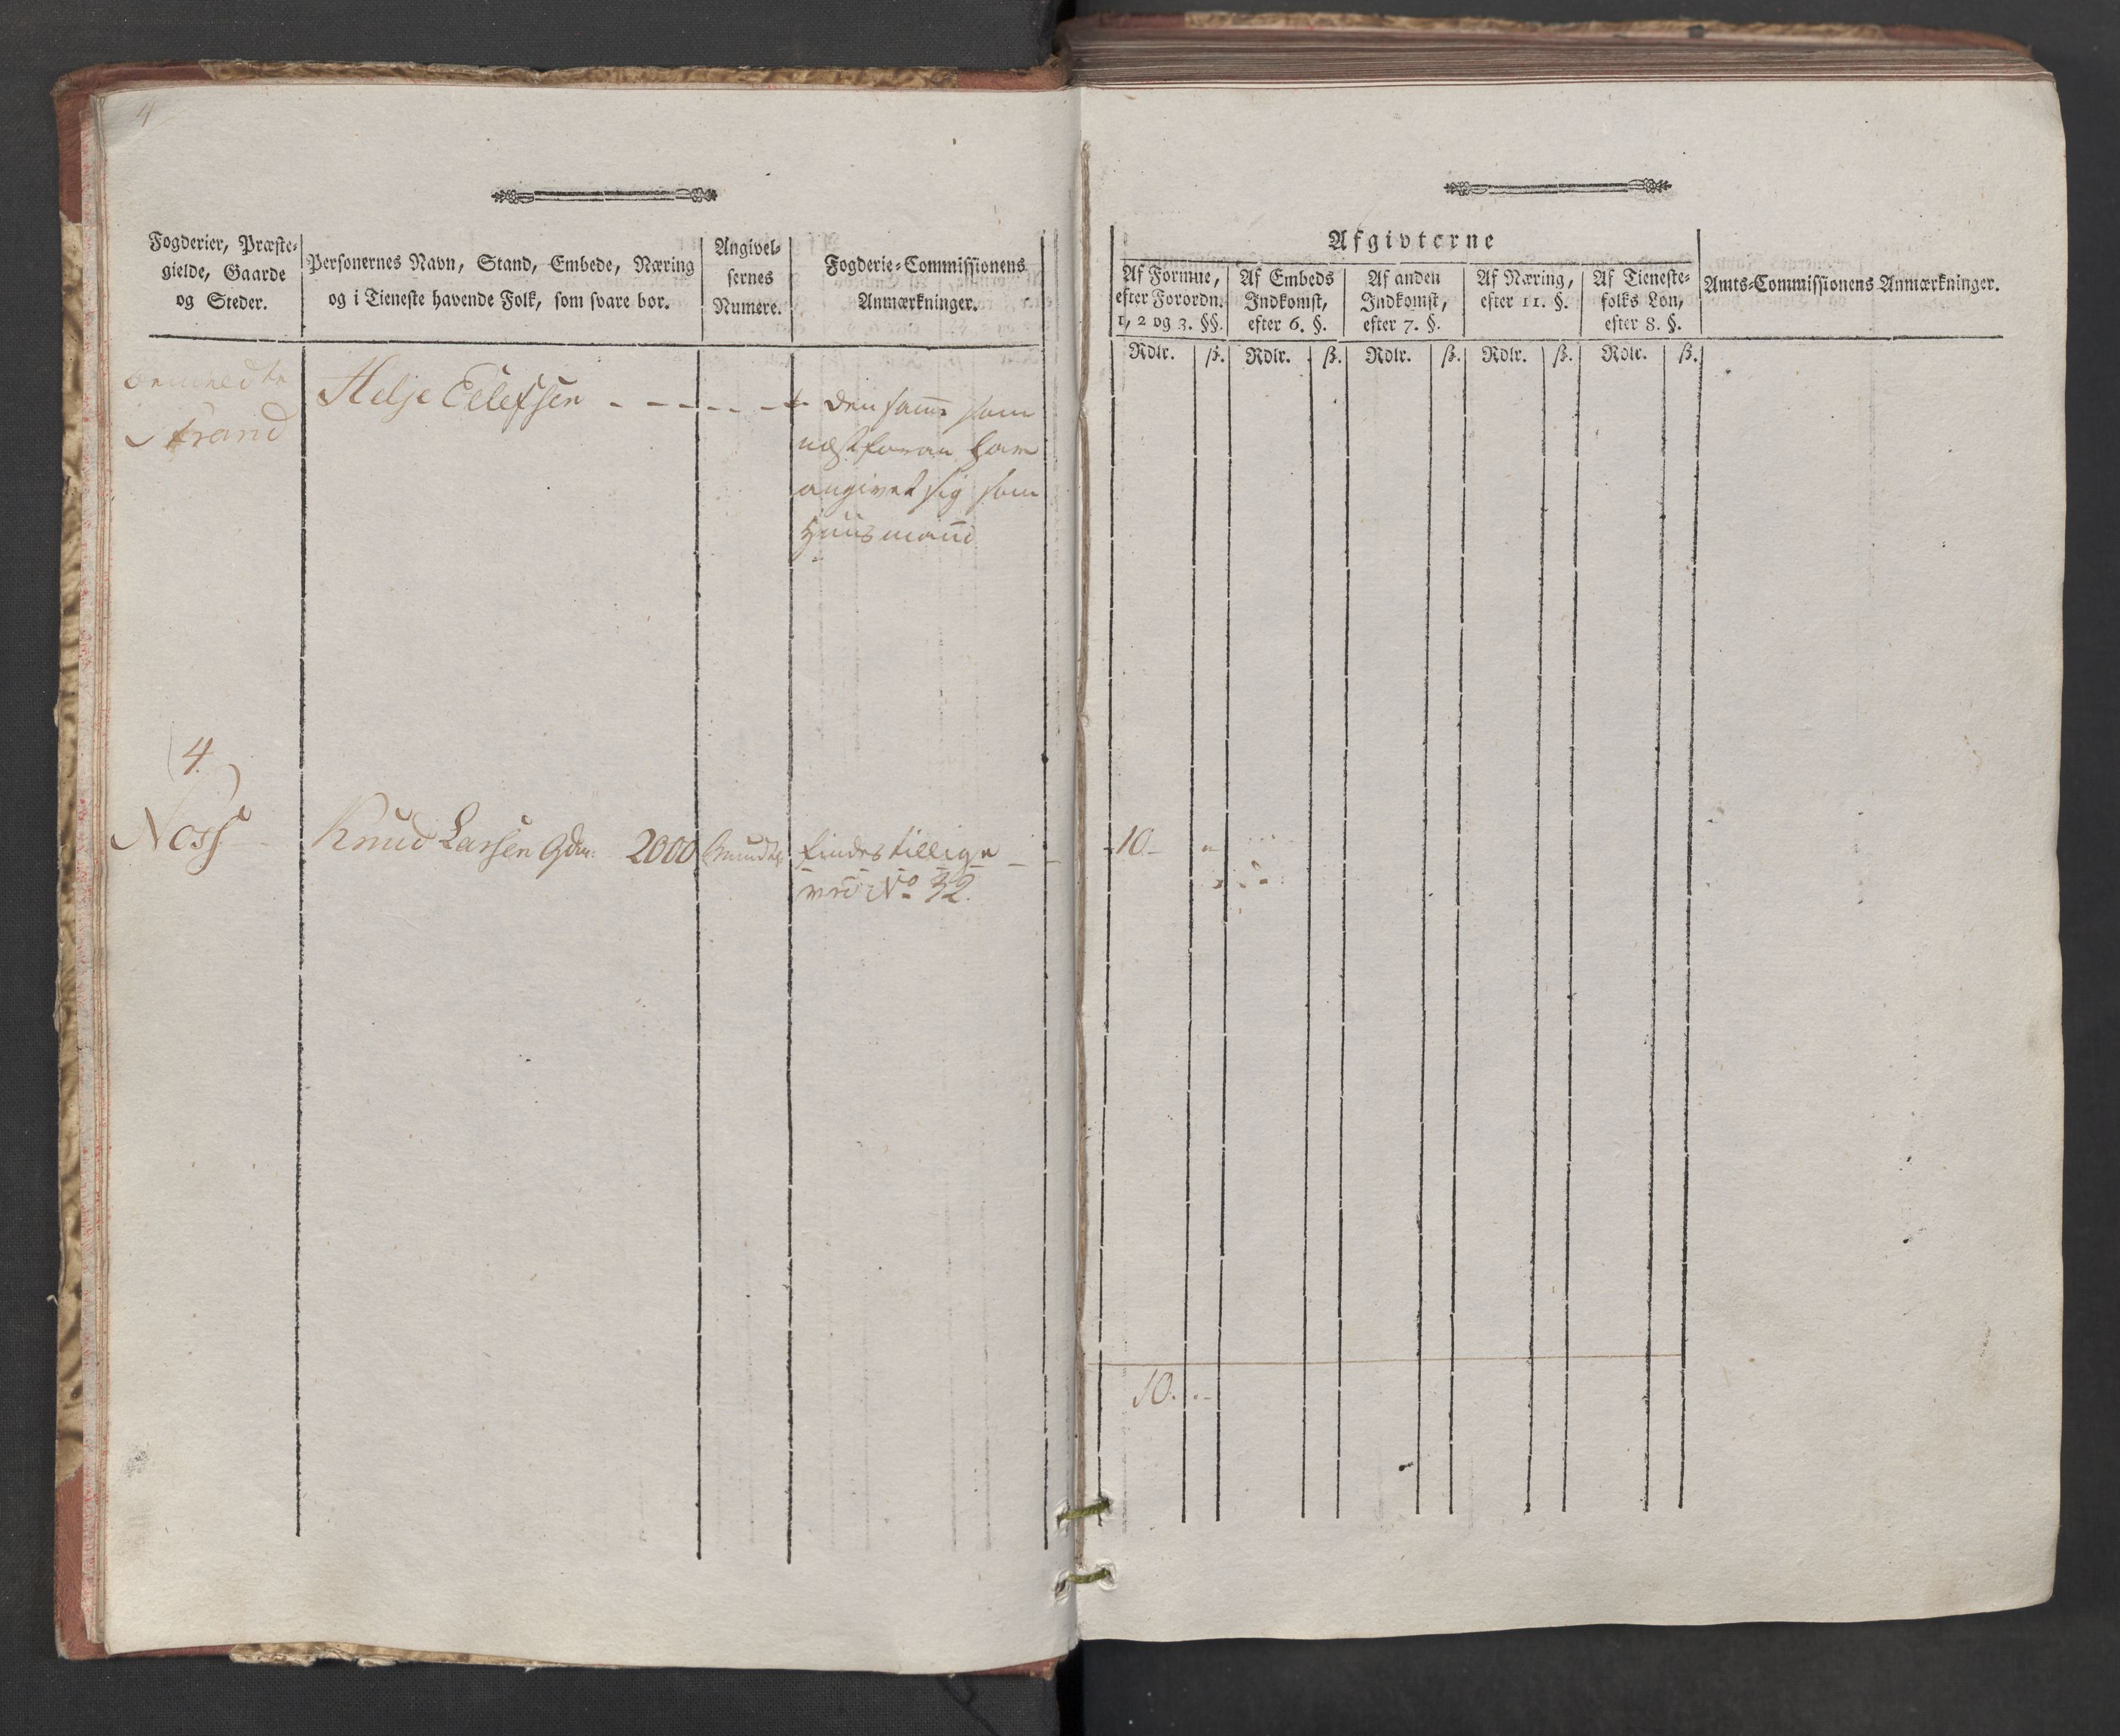 4
Fogderier, Præste-
gielde, Gaarde
og Steder.
Personernes Navn, Stand, Embede, Næring
og i Tieneste havende Folk, som svare bør.
Angivel-
sernes
Numere.
Fogderie-Commissionens
Anmærkninger.
bemeldte
Strand
Helje Eilefsen
den samme som
næstforan har
angivet sig som
Huusmand
4.
Ness
Knud Larsen Gdm. 2000
findes tillige
ved No 32.
Afgivterne
Af Formue,
efter Forordn.
1, 2 og 3. §§.
Af Embeds
Indkomst,
efter 6. §.
Af anden
Indkomst,
efter 7. §.
Af Næring,
efter 11. §.
Af Tieneste-
folks Løn,
efter 8. §.
Amts-Commissionens Anmærkninger.
Rdlr. ß. Rdlr. ß. Rdlr. ß. Rdlr. ß. Rdlr. ß.
10 -
10. -